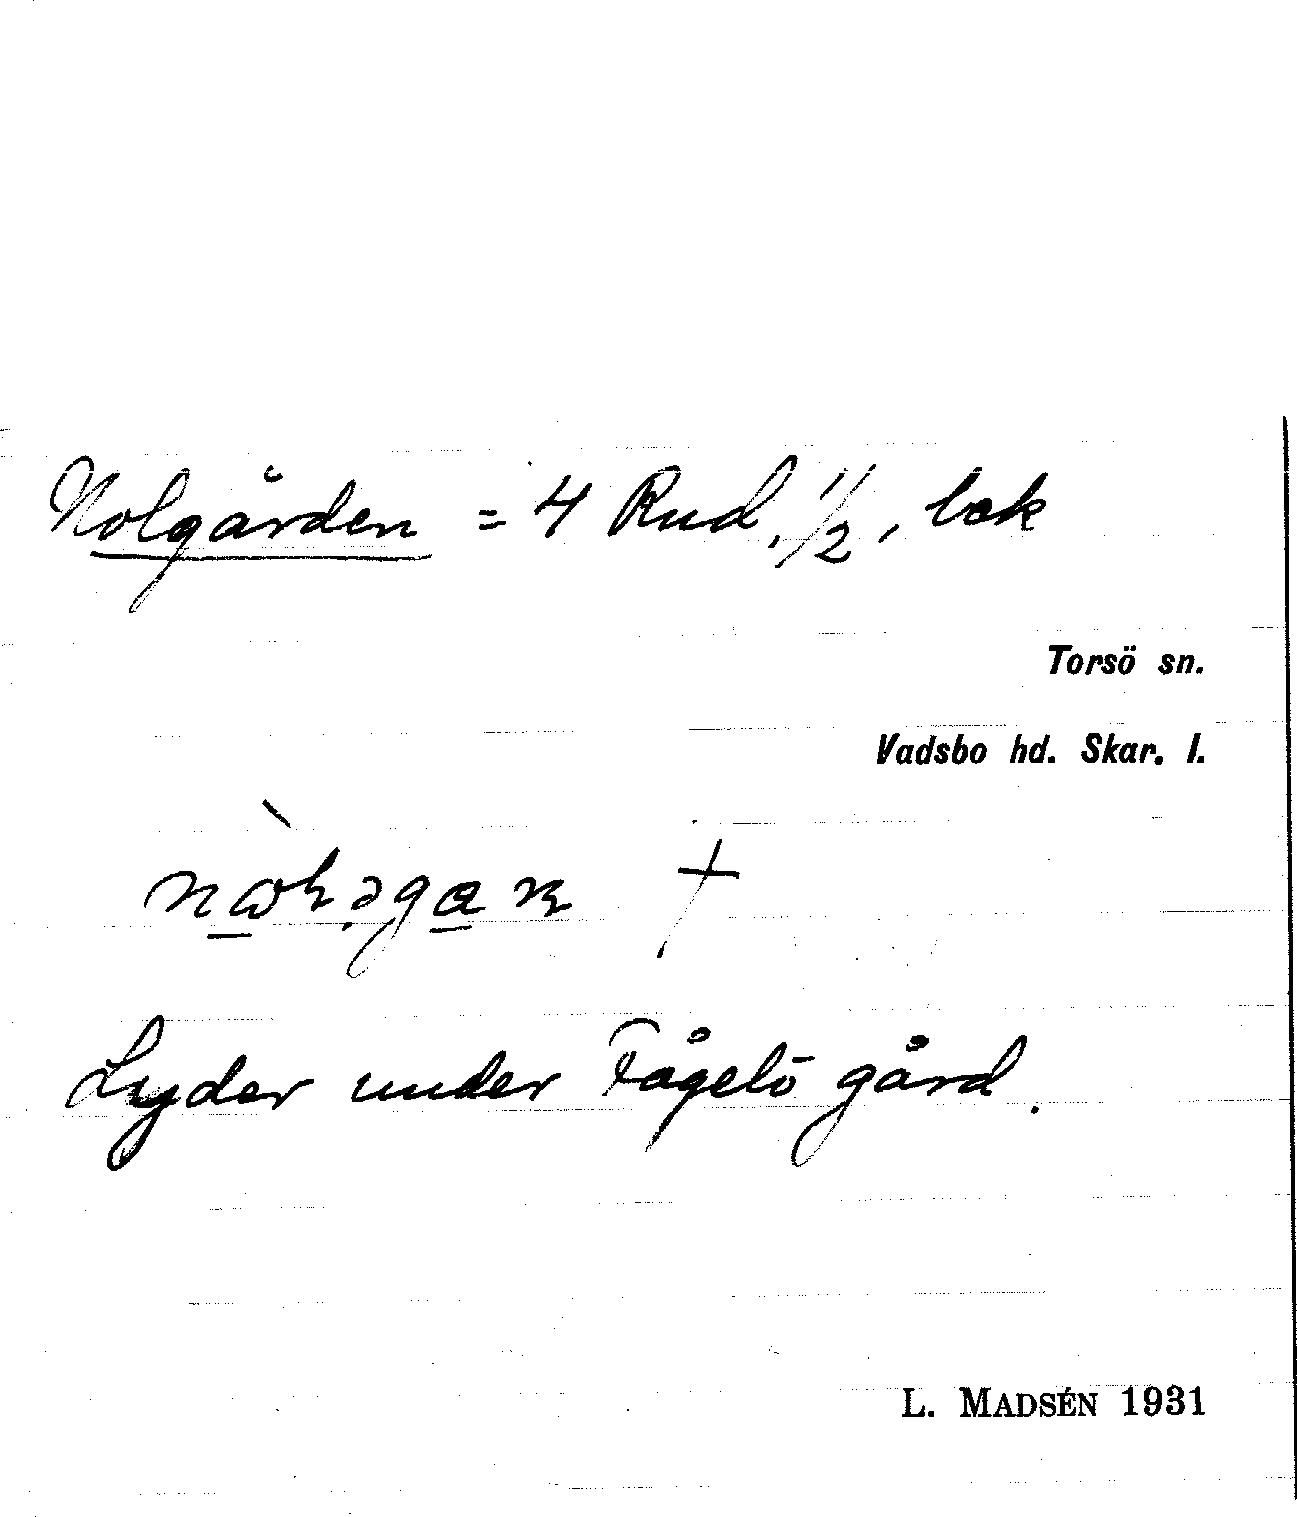 Nolgården = 4 Rud, 1/2, bek
Torsö sn.
Vadsbo hd. Skar. l.
Lyder under Fågelö gård.
L. MADSÉN 1931